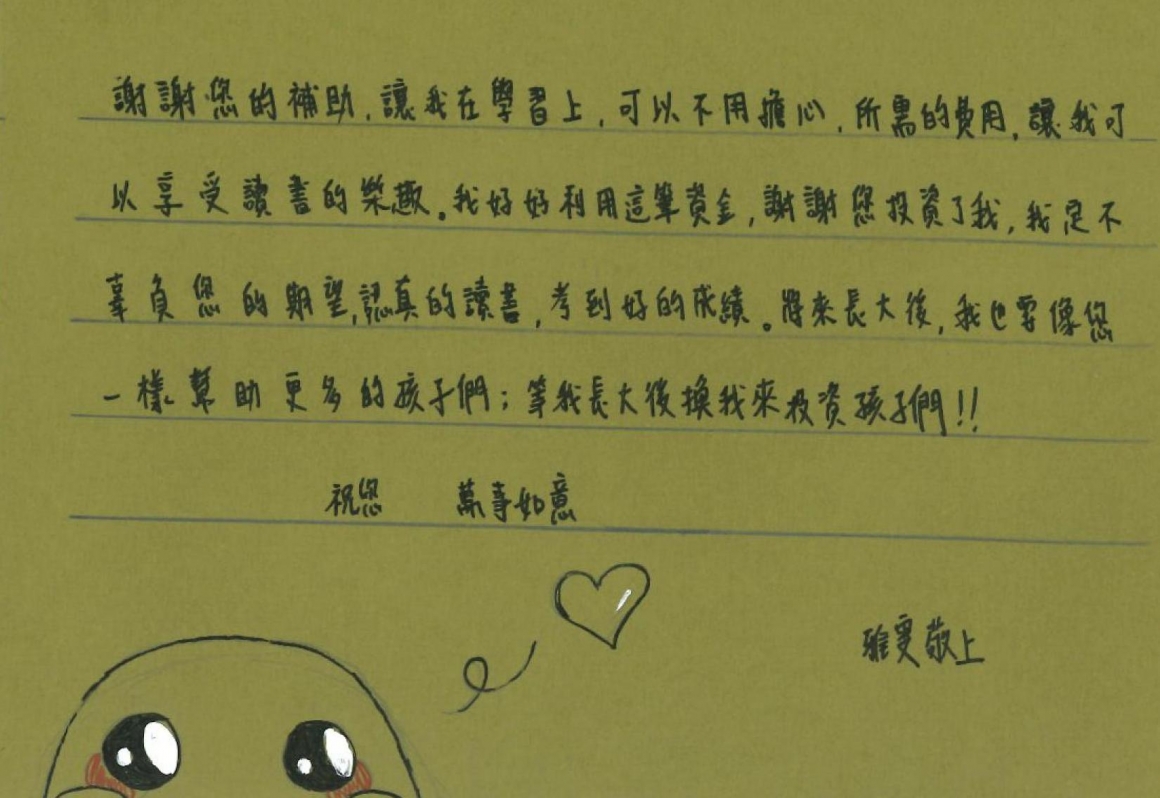 謝謝您的補助,讓我在學習上,可以不用擔心,所需的費用,讓我可
以享受讀書的樂趣。我好好利用這筆資金,謝謝您投資了我,我定不
辜負您的期望,認真的讀書,考到好的成績。將來長大後,我也要像您
一樣幫助更多的孩子們;等我長大後換我來投資孩子們!!
祝您 萬事如意
雅雯敬上